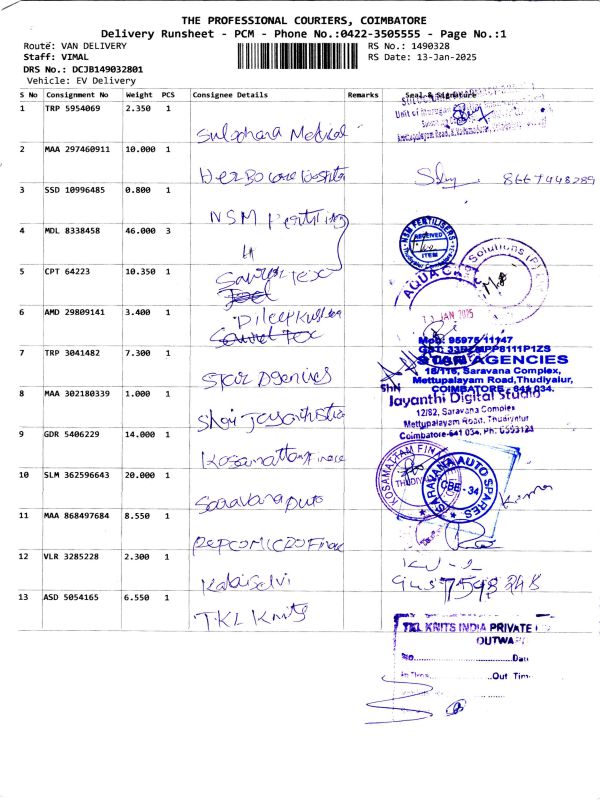 THE PROFESSIONAL COURIERS, COIMBATORE
Delivery Runsheet - PCM - Phone No.:0422-3505555 - Page No.:1
Route: VAN DELIVERY
RS No.: 1490328
Staff: VIMAL
RS Date: 13-Jan-2025
DRS No.: DCJB149032801
Vehicle: EV Delivery
S No Consignment No Weight PCS Consignee Details Remarks Seal & Signature
1 TRP 5954069 2.350 1
Sulochana Medical
2 MAA 297460911 10.000 1
8667448289
3 SSD 10996485 0.800 1
NSM
4 MDL 8338458 46.000 3
NSM FERTILISERS
RECEIVED
ITEM
5 CPT 64223 10.350 1
AQUA
Solutions
6 AMD 29809141 3.400 1
JAN 2025
Mob: 95975 11147
7 TRP 3041482 7.300 1
Star Agencies
AGENCIES
18/116, Saravana Complex,
Mettupalayam Road, Thudiyalur,
COIMBATORE - 641 034.
8 MAA 302180339 1.000 1
Jayanthi Digital Studio
12/82, Saravana Complex
Mettupalayam Road, Thudiyalur
Coimbatore-641 034. Ph:
9 GDR 5406229 14.000 1
KOSAMATTAM FIN
10 SLM 362596643 20.000 1
SARAVANA AUTO SPARES
CBE - 34
11 MAA 868497684 8.550 1
12 VLR 3285228 2.300 1
Kalaiselvi
13 ASD 5054165 6.550 1
TKL Knits
TKL KNITS INDIA PRIVATE
OUTWA
No. Date
In Time Out Time